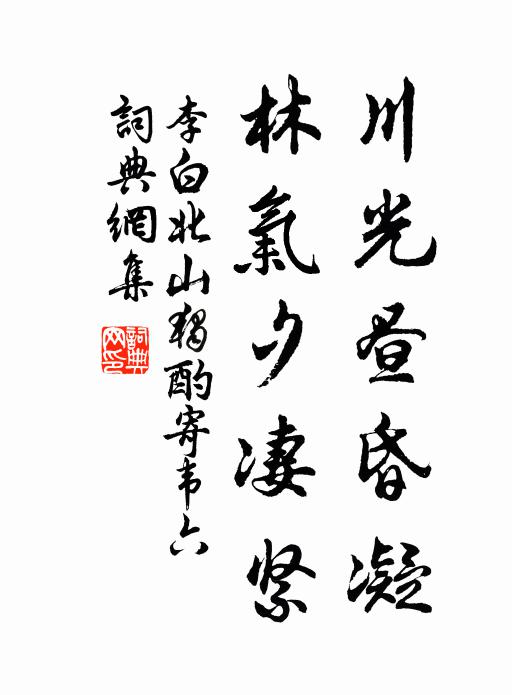 川光昼昏凝
林氣夕凄緊
李白北山獨酌寄韦六
詞典網集
詞典网印